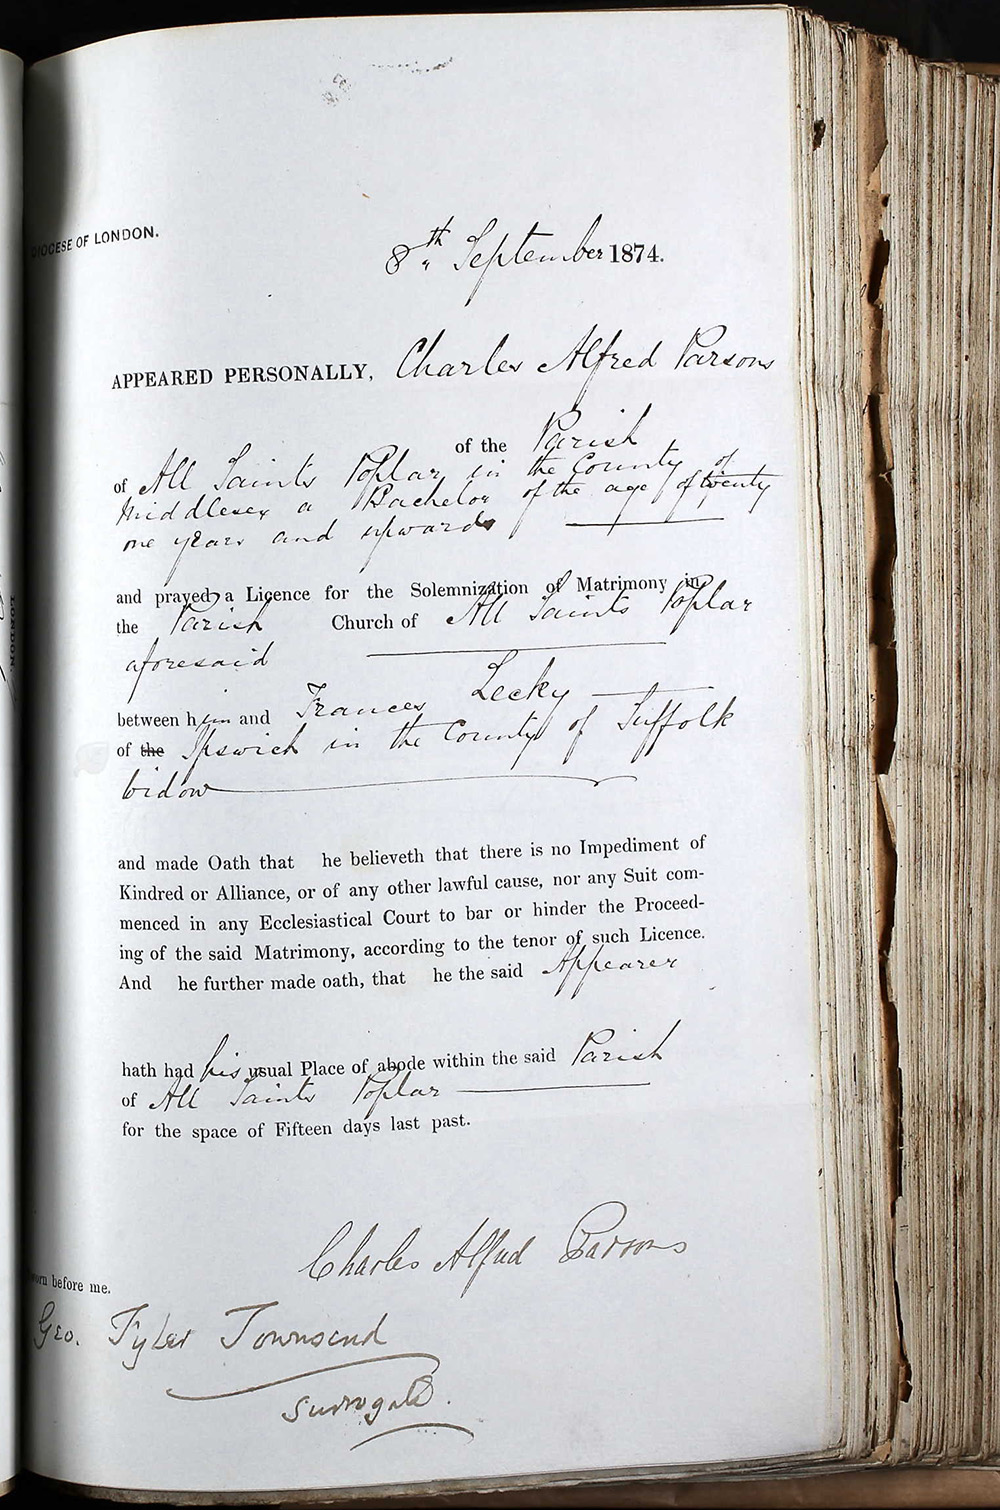 DIOCESE OF LONDON.
8th September 1874.
APPEARED PERSONALLY, Charles Alfred Parsons
of the Parish
of All Saints Poplar in the County of
Middlesex a Bachelor of the age of twenty
one years and upwards
and prayed a Licence for the Solemnization of Matrimony in
the Parish Church of All Saints Poplar
aforesaid
between him and Frances Lecky
of the Ipswich in the County of Suffolk
Widow
and made Oath that he believeth that there is no Impediment of
Kindred or Alliance, or of any other lawful cause, nor any Suit com-
menced in any Ecclesiastical Court to bar or hinder the Proceed-
ing of the said Matrimony, according to the tenor of such Licence.
And he further made oath, that he the said Appearer
hath had his usual Place of abode within the said Parish
of All Saints Poplar
for the space of Fifteen days last past.
Charles Alfred Parsons
Sworn before me.
Geo. Tyler Townsend
Surrogate.